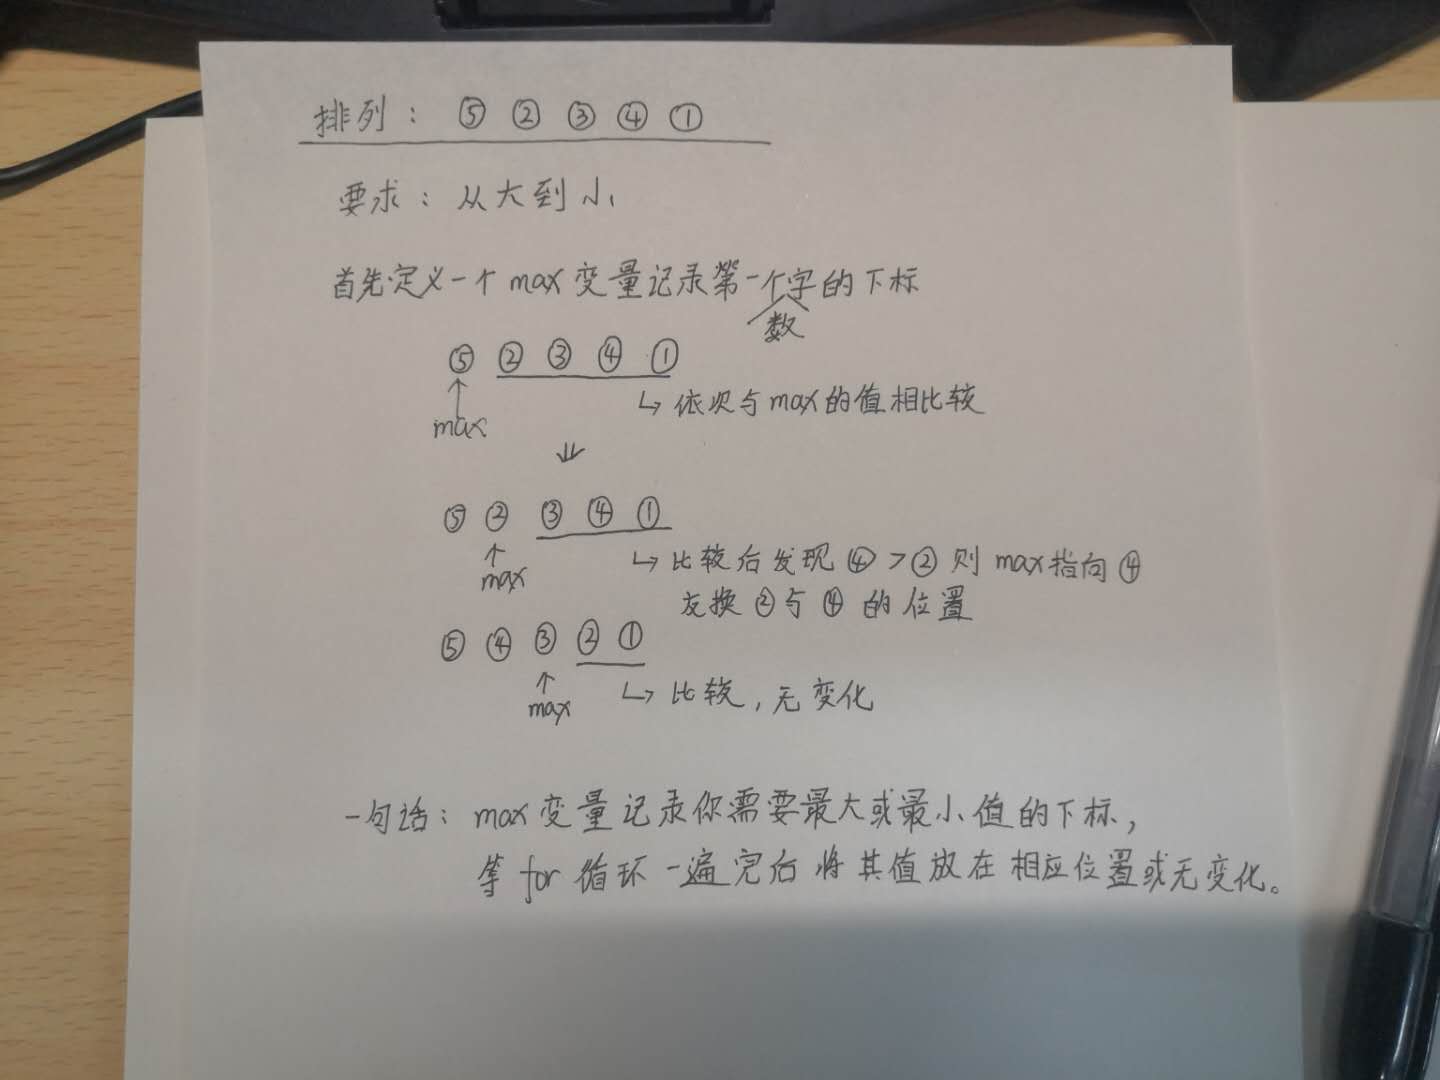 排列： ⑤ ② ③ ④ ①
要求：从大到小
首先定义一个max变量记录第一个数字的下标
⑤ ② ③ ④ ①
max
↳ 依次与max的值相比较
⑤ ② ③ ④ ①
max
↳ 比较后发现④>②则max指向④
交换②与④的位置
⑤ ④ ③ ② ①
max
↳ 比较,无变化
一句话：max变量记录你需要最大或最小值的下标,
等for循环一遍完后将其值放在相应位置或无变化。